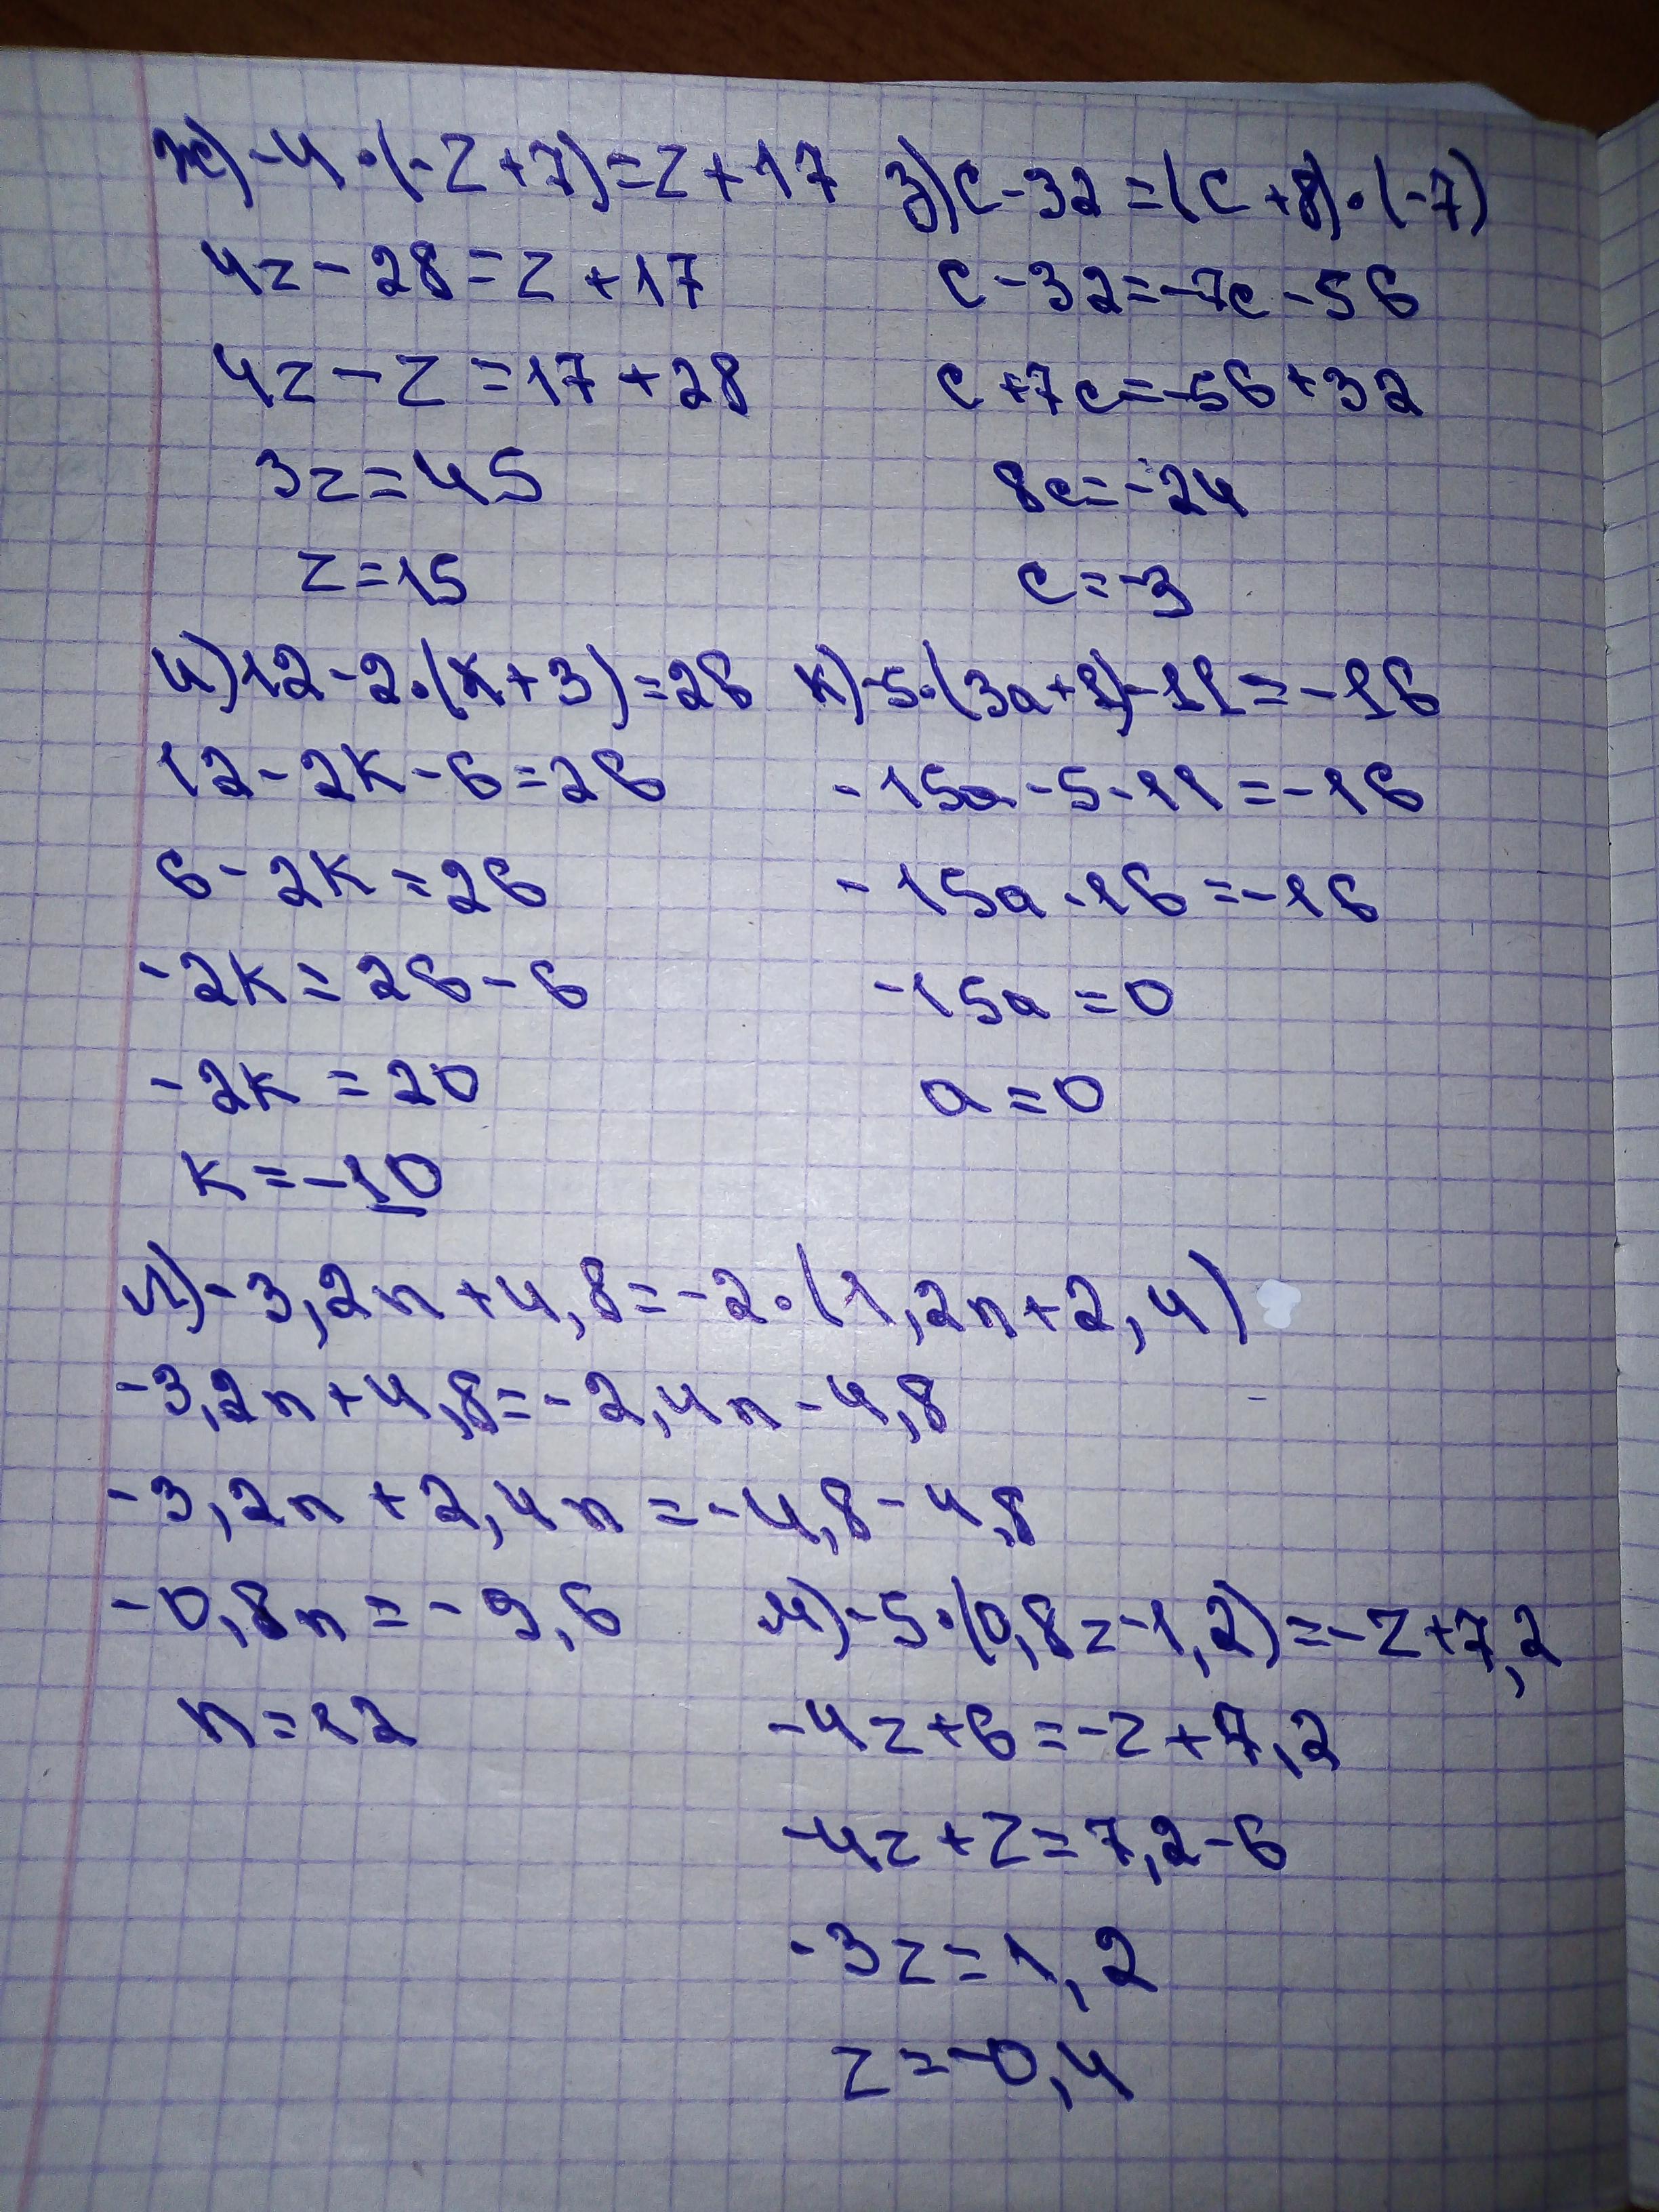 ж) -4·(-z+7)=z+17
4z-28=z+17
4z-z=17+28
3z=45
z=15
з) c-32=(c+8)·(-7)
c-32=-7c-56
c+7c=-56+32
8c=-24
c=-3
и) 12-2·(k+3)=26
12-2k-6=26
6-2k=26
-2k=26-6
-2k=20
k=-10
к) -5·(3a+1)-11=-16
-15a-5-11=-16
-15a-16=-16
-15a=0
a=0
л) -3,2n+4,8=-2·(1,2n+2,4)
-3,2n+4,8=-2,4n-4,8
-3,2n+2,4n=-4,8-4,8
-0,8n=-9,6
n=12
м) -5·(0,8z-1,2)=-z+7,2
-4z+6=-z+7,2
-4z+z=7,2-6
-3z=1,2
z=-0,4